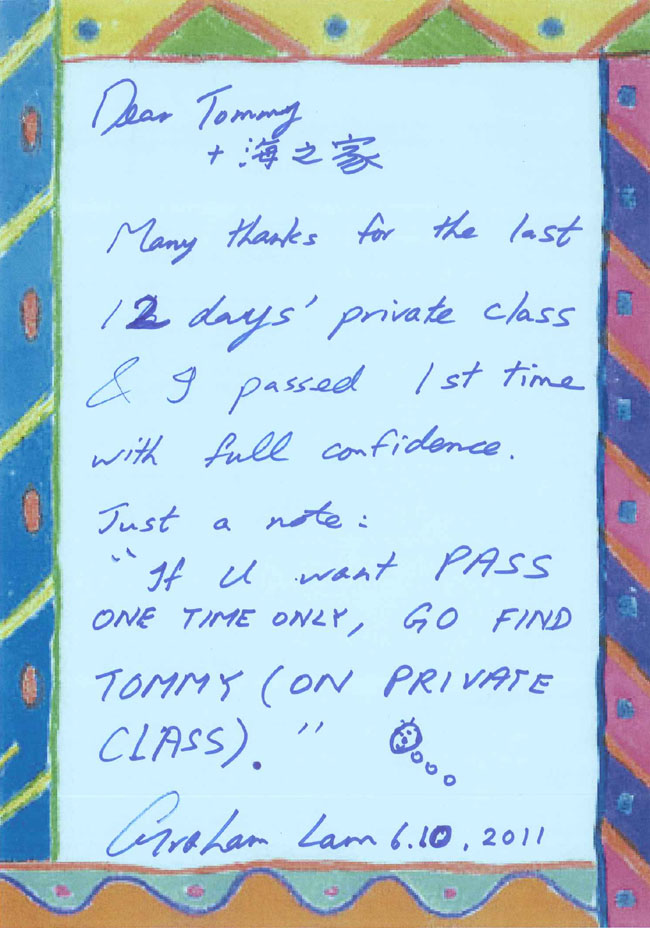 Dear Tommy
+ 海之家
Many thanks for the last
12 days' private class
& I passed 1st time
with full confidence.
Just a note:
"If U want PASS
ONE TIME ONLY, GO FIND
TOMMY (ON PRIVATE
CLASS)."
Graham Lam 6.10.2011